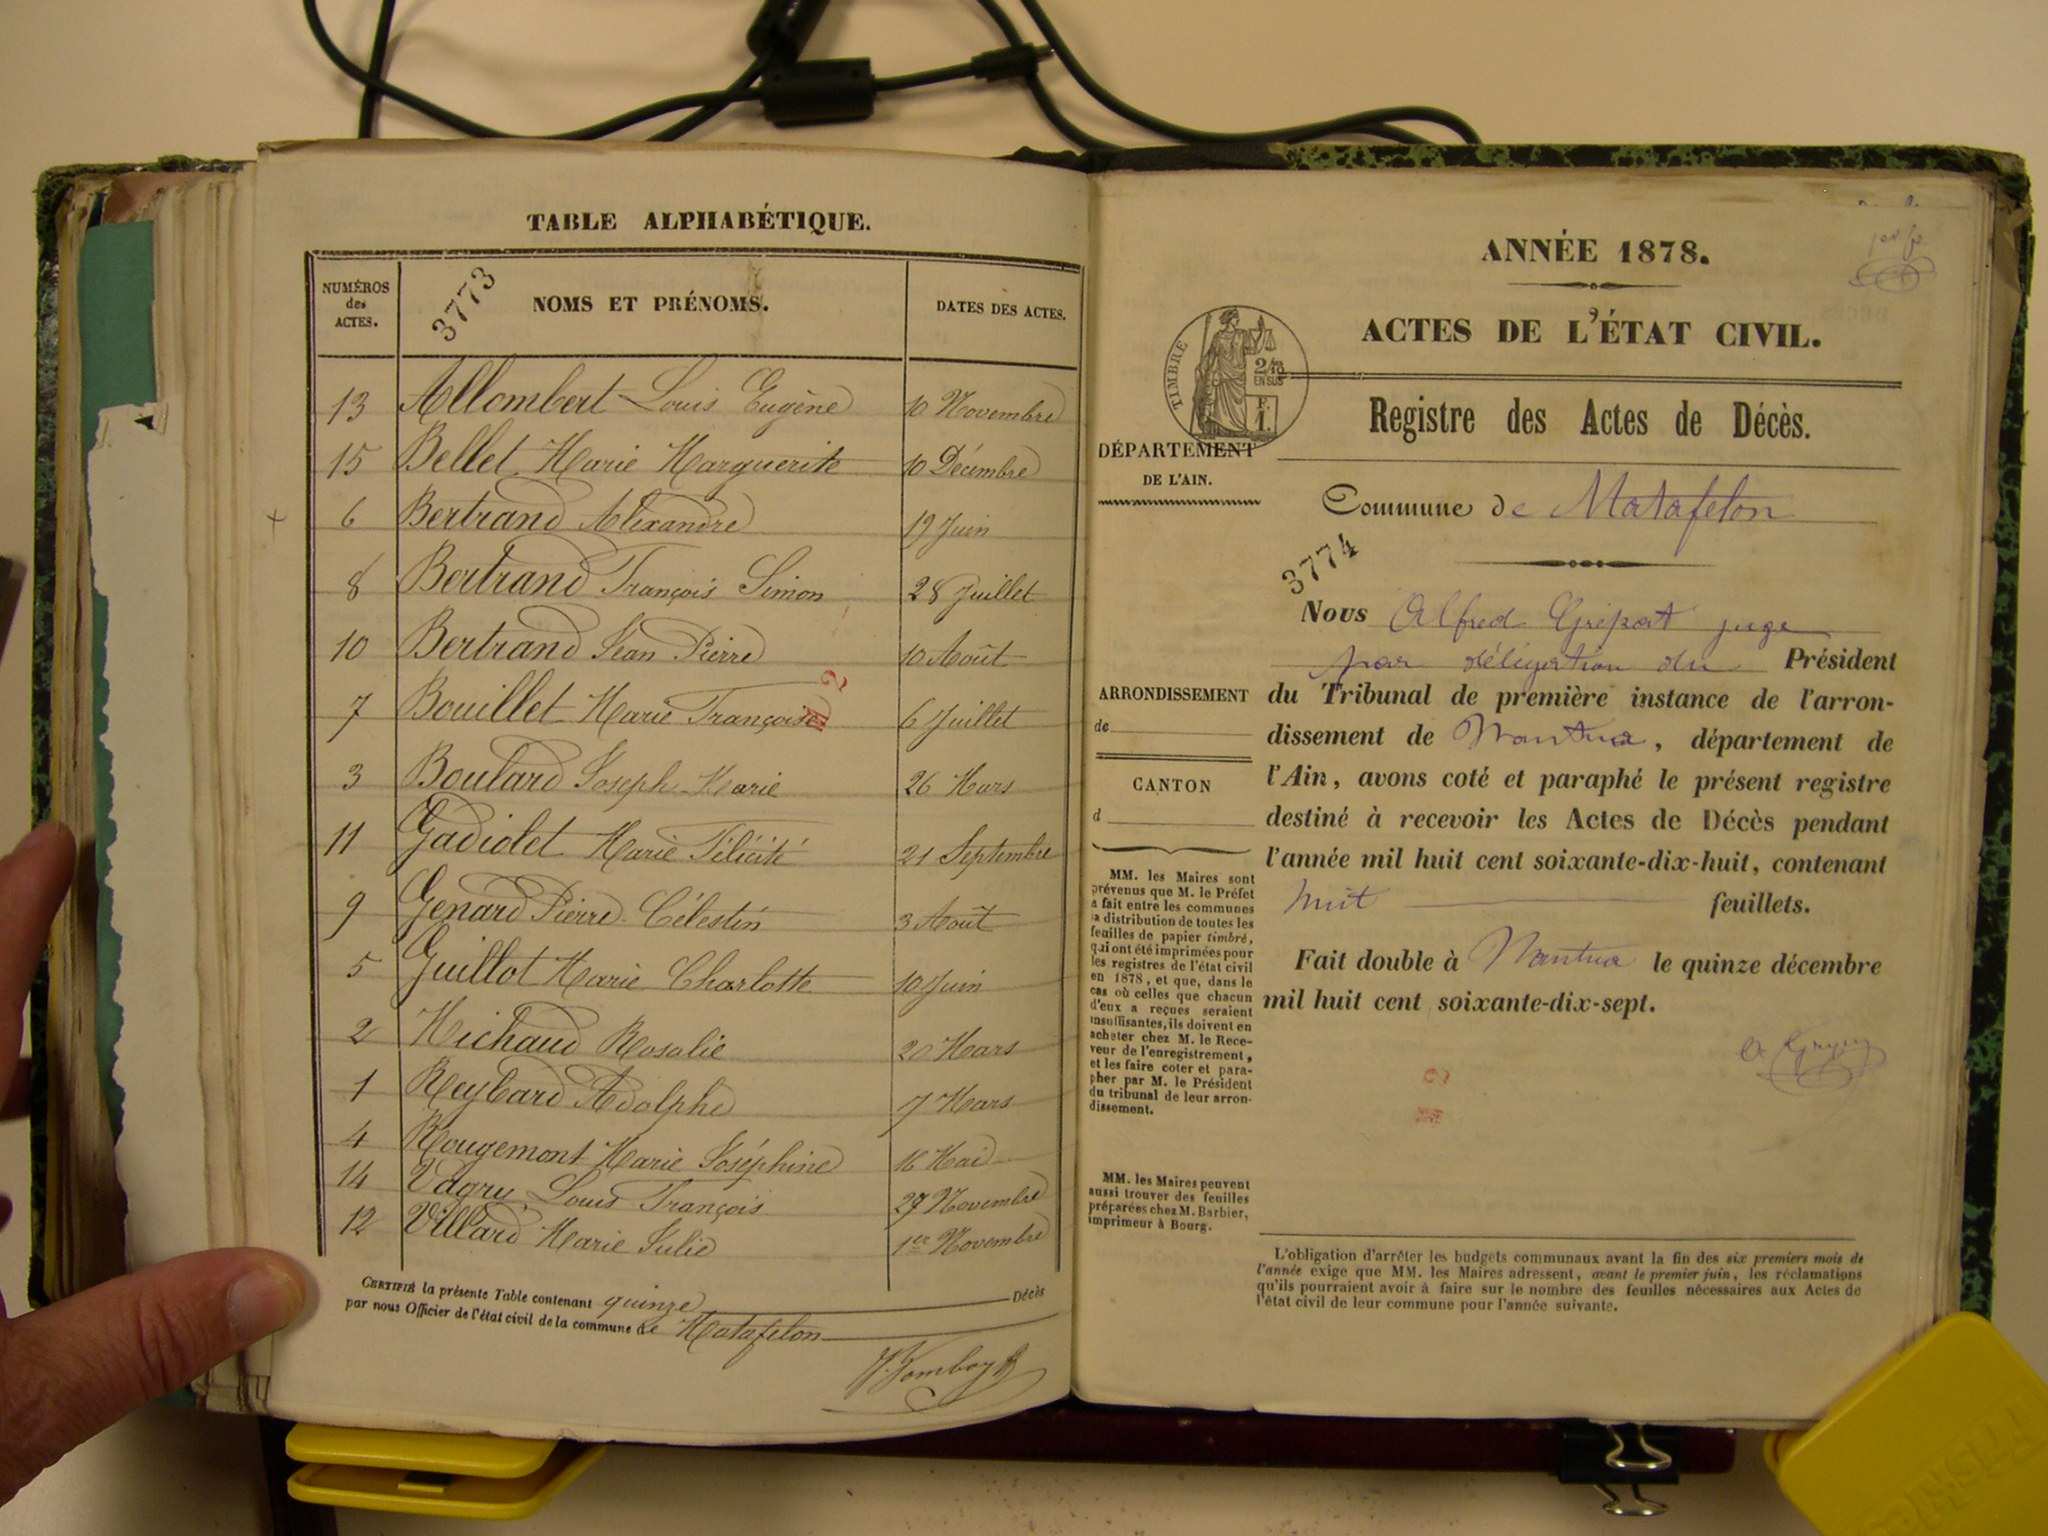 TABLE ALPHABÉTIQUE.
NUMÉROS
des
ACTES.
3773
NOMS ET PRÉNOMS.
DATES DES ACTES.
13 Allombert Louis Eugène 10 Novembre
15 Bellet Marie Marguerite 10 Décembre
6 Bertrand Alexandre 19 Juin
8 Bertrand François Simon 28 Juillet
10 Bertrand Jean Pierre 10 Août
7 Bouillet Marie Françoise 6 Juillet
3 Boulard Joseph Marie 26 Mars
11 Gadiolet Marie Félicité 21 Septembre
9 Genard Pierre Célestin 3 Août
5 Guillot Marie Charlotte 10 Juin
2 Michaud Rosalie 20 Mars
1 Reybard Adolphe 7 Mars
4 Rougemont Marie Joséphine 16 Mai
14 Vagry Louis François 27 Novembre
12 Villard Marie Julie 1er Novembre
CERTIFIÉ la présente Table contenant quinze Décès
par nous Officier de l'état civil de la commune de Matafelon
ANNÉE 1878.
ACTES DE L'ÉTAT CIVIL.
TIMBRE
2/10
EN SUS
F.
1.
Registre des Actes de Décès.
DÉPARTEMENT
DE L'AIN.
Commune de Matafelon
3774
Nous Alfred juge
par délégation du Président
du Tribunal de première instance de l'arron-
dissement de Nantua, département de
l'Ain, avons coté et paraphé le présent registre
destiné à recevoir les Actes de Décès pendant
l'année mil huit cent soixante-dix-huit, contenant
huit feuillets.
Fait double à Nantua le quinze décembre
mil huit cent soixante-dix-sept.
ARRONDISSEMENT
de
CANTON
d
MM. les Maires sont
prévenus que M. le Préfet
a fait entre les communes
la distribution de toutes les
feuilles de papier timbré,
qui ont été imprimées pour
les registres de l'état civil
en 1878, et que, dans le
cas où celles que chacun
d'eux a reçues seraient
insuffisantes, ils doivent en
acheter chez M. le Rece-
veur de l'enregistrement,
et les faire coter et para-
pher par M. le Président
du tribunal de leur arron-
dissement.
MM. les Maires peuvent
aussi trouver des feuilles
préparées chez M. Barbier,
imprimeur à Bourg.
L'obligation d'arrêter les budgets communaux avant la fin des six premiers mois de
l'année exige que MM. les Maires adressent, avant le premier juin, les réclamations
qu'ils pourraient avoir à faire sur le nombre des feuilles nécessaires aux Actes de
l'état civil de leur commune pour l'année suivante.